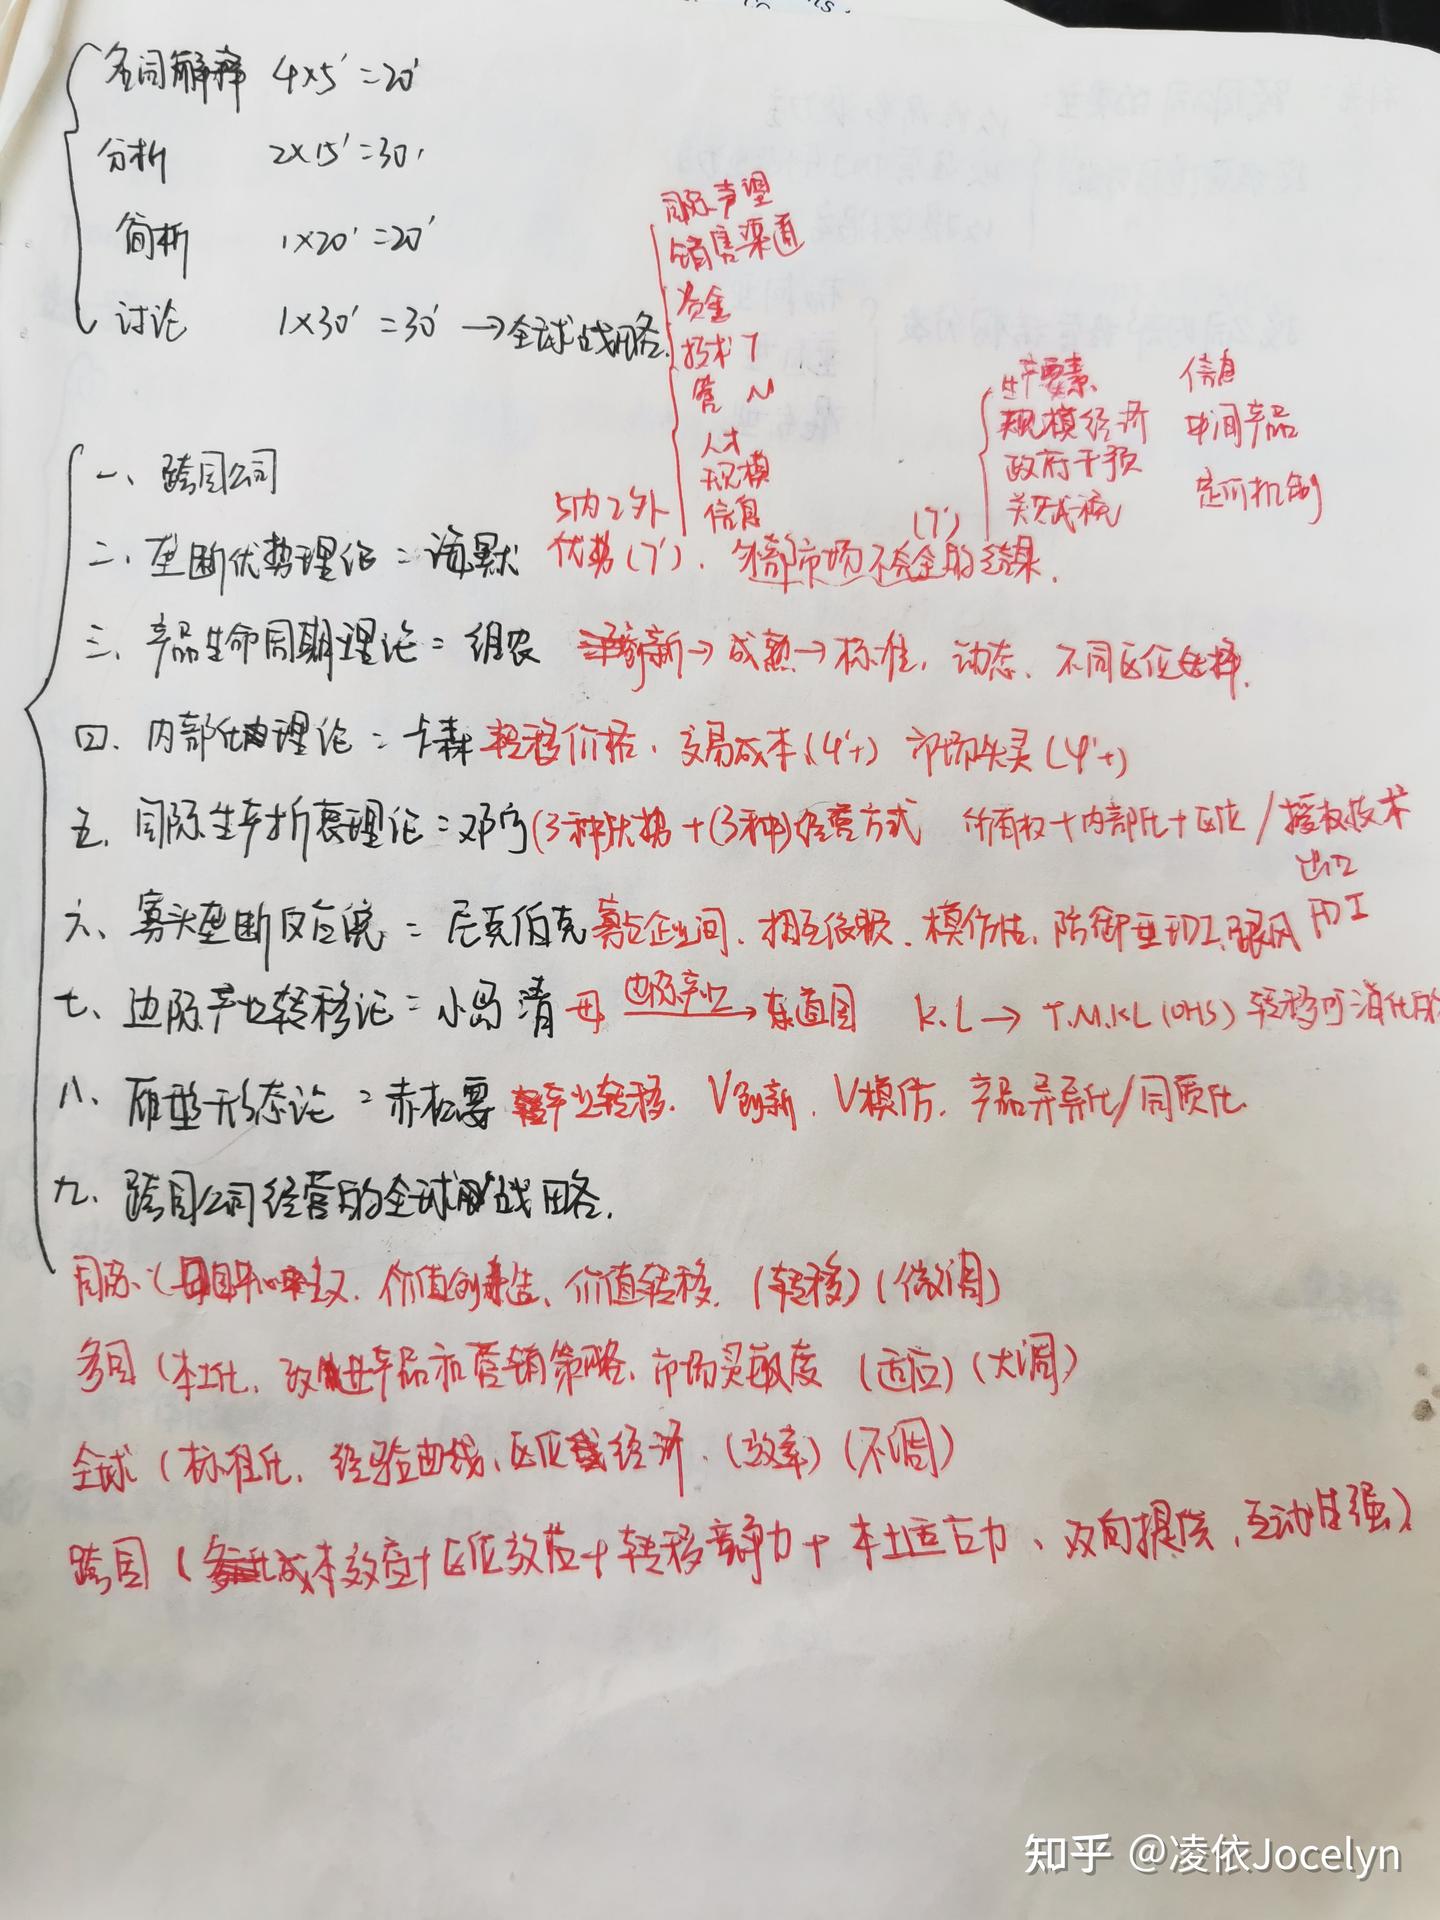 名词解释 4×5'=20'
分析 2×15'=30'
简析 1×20'=20'
讨论 1×30'=30' →全球战略
国际声望
销售渠道
资金
技术 T
管 M
人才
规模
信息
生产要素 信息
规模经济 中间产品
政府干预 定价机制
关税
一、跨国公司
二、垄断优势理论=海默 5内2外 优势(7')、外部市场不完全的结果. (7')
三、产品生命周期理论=维农 创新→成熟→标准，动态、不同区位选择.
四、内部化理论=卡森 转移价格、交易成本(4'+) 市场失灵(4'+)
五、国际生产折衷理论=邓宁(3种优势+(3种)经营方式 所有权+内部化+区位/授权技术
出口
FDI
六、寡头垄断反应论=尼克伯克 寡占企业间、相互依赖、模仿性、防御型FDI、跟风
七、边际产业转移论=小岛清 母 边际产业→东道国 K.L→T.M.K.L(OHS)转移可消化的
八、雁型形态论=赤松要 产业转移. V创新. V模仿. 产品异质化/同质化
九、跨国公司经营的全球战略.
国际(母国中心主义、价值创造、价值转移、(转移)(微调)
多国(本土化、改进产品和营销策略、市场灵敏度 (适应)(大调)
全球(标准化、经验曲线、区位经济、(效率)(不调)
跨国(成本效应+区位效应+转移竞争力+本土适应力、双向提供，互动性强)
知乎 @凌依Jocelyn